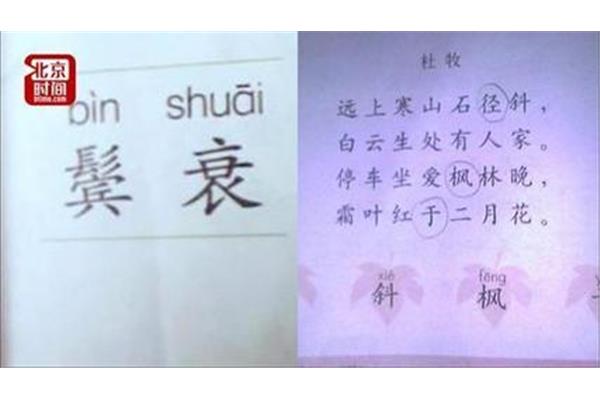 北京
时间
btime.com
bìn shuāi
鬓 衰
杜牧
远上寒山石径斜，
白云生处有人家。
停车坐爱枫林晚，
霜叶红于二月花。
xié fēng
斜 枫